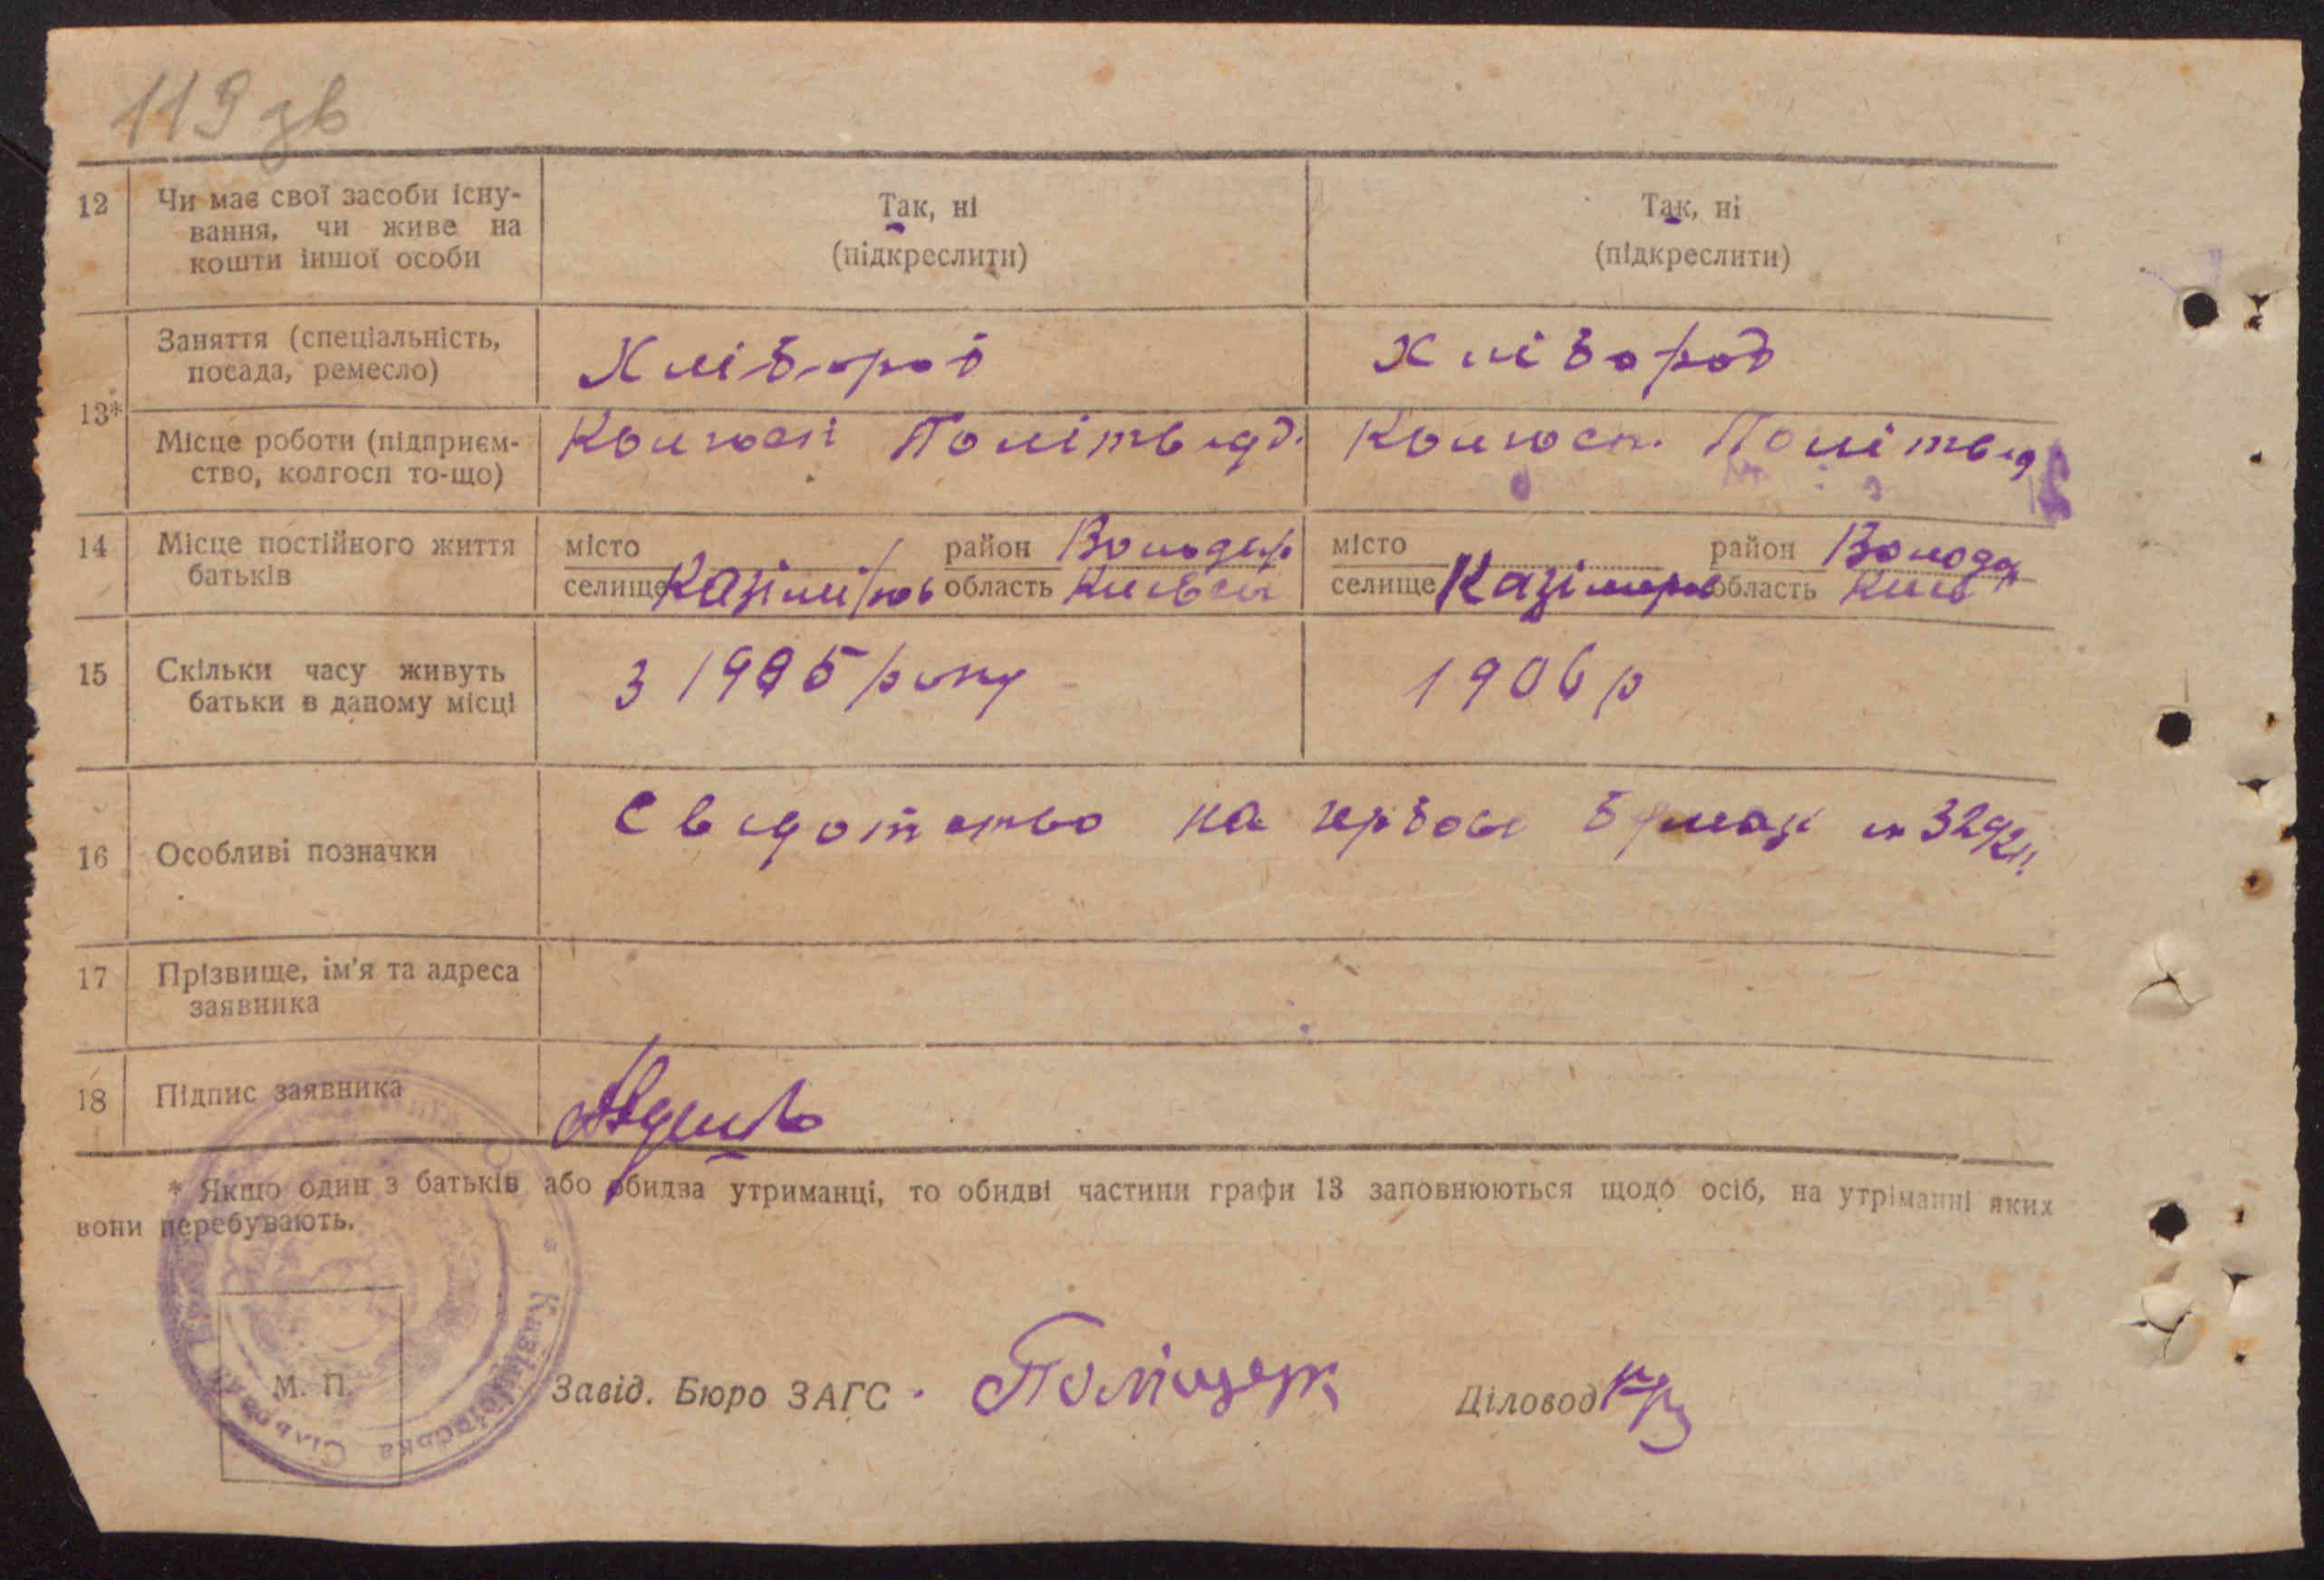 119 зв
12 Чи має свої засоби існу-
вання, чи живе на
кошти іншої особи
Так, ні
(підкреслити)
Так, ні
(підкреслити)
13*
Заняття (спеціальність,
посада, ремесло)
Хлібороб
Хлібороб
Місце роботи (підприєм-
ство, колгосп то-що)
Колгосп Політвідд.
Колгосп. Політвід
14 Місце постійного життя
батьків
місто
селище Казіміров
район Володар
область Київськ
місто
селище Казіміров
район Волода
область Київ
15 Скільки часу живуть
батьки в даному місці
з 1905 року
1906 р
16 Особливі позначки
Свідотство на гербові бумазі
17 Прізвище, ім’я та адреса
заявника
18 Підпис заявника
* Якщо один з батьків або обидва утриманці, то обидві частини графи 13 заповнюються щодо осіб, на утріманні яких
вони перебувають.
М. П.
Казімірівська Сільська
Завід. Бюро ЗАГС
Поліщук
Діловод